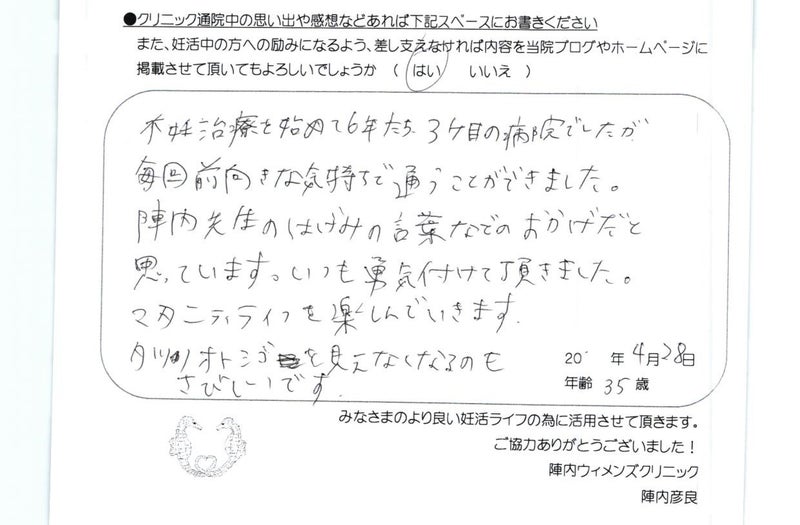 ●クリニック通院中の思い出や感想などあれば下記スペースにお書きください
また、妊活中の方への励みになるよう、差し支えなければ内容を当院ブログやホームページに
掲載させて頂いてもよろしいでしょうか （ はい　いいえ ）
不妊治療を始めて6年たち、3ケ目の病院でしたが
毎回前向きな気持ちで通うことができました。
陣内先生のはげみの言葉などのおかげだと
思っています。いつも勇気付けて頂きました。
マタニティライフを楽しんでいきます。
タツノオトシゴを見えなくなるのも
さびしいです。
20 年 4月28日
年齢 35歳
みなさまのより良い妊活ライフの為に活用させて頂きます。
ご協力ありがとうございました！
陣内ウィメンズクリニック
陣内彦良